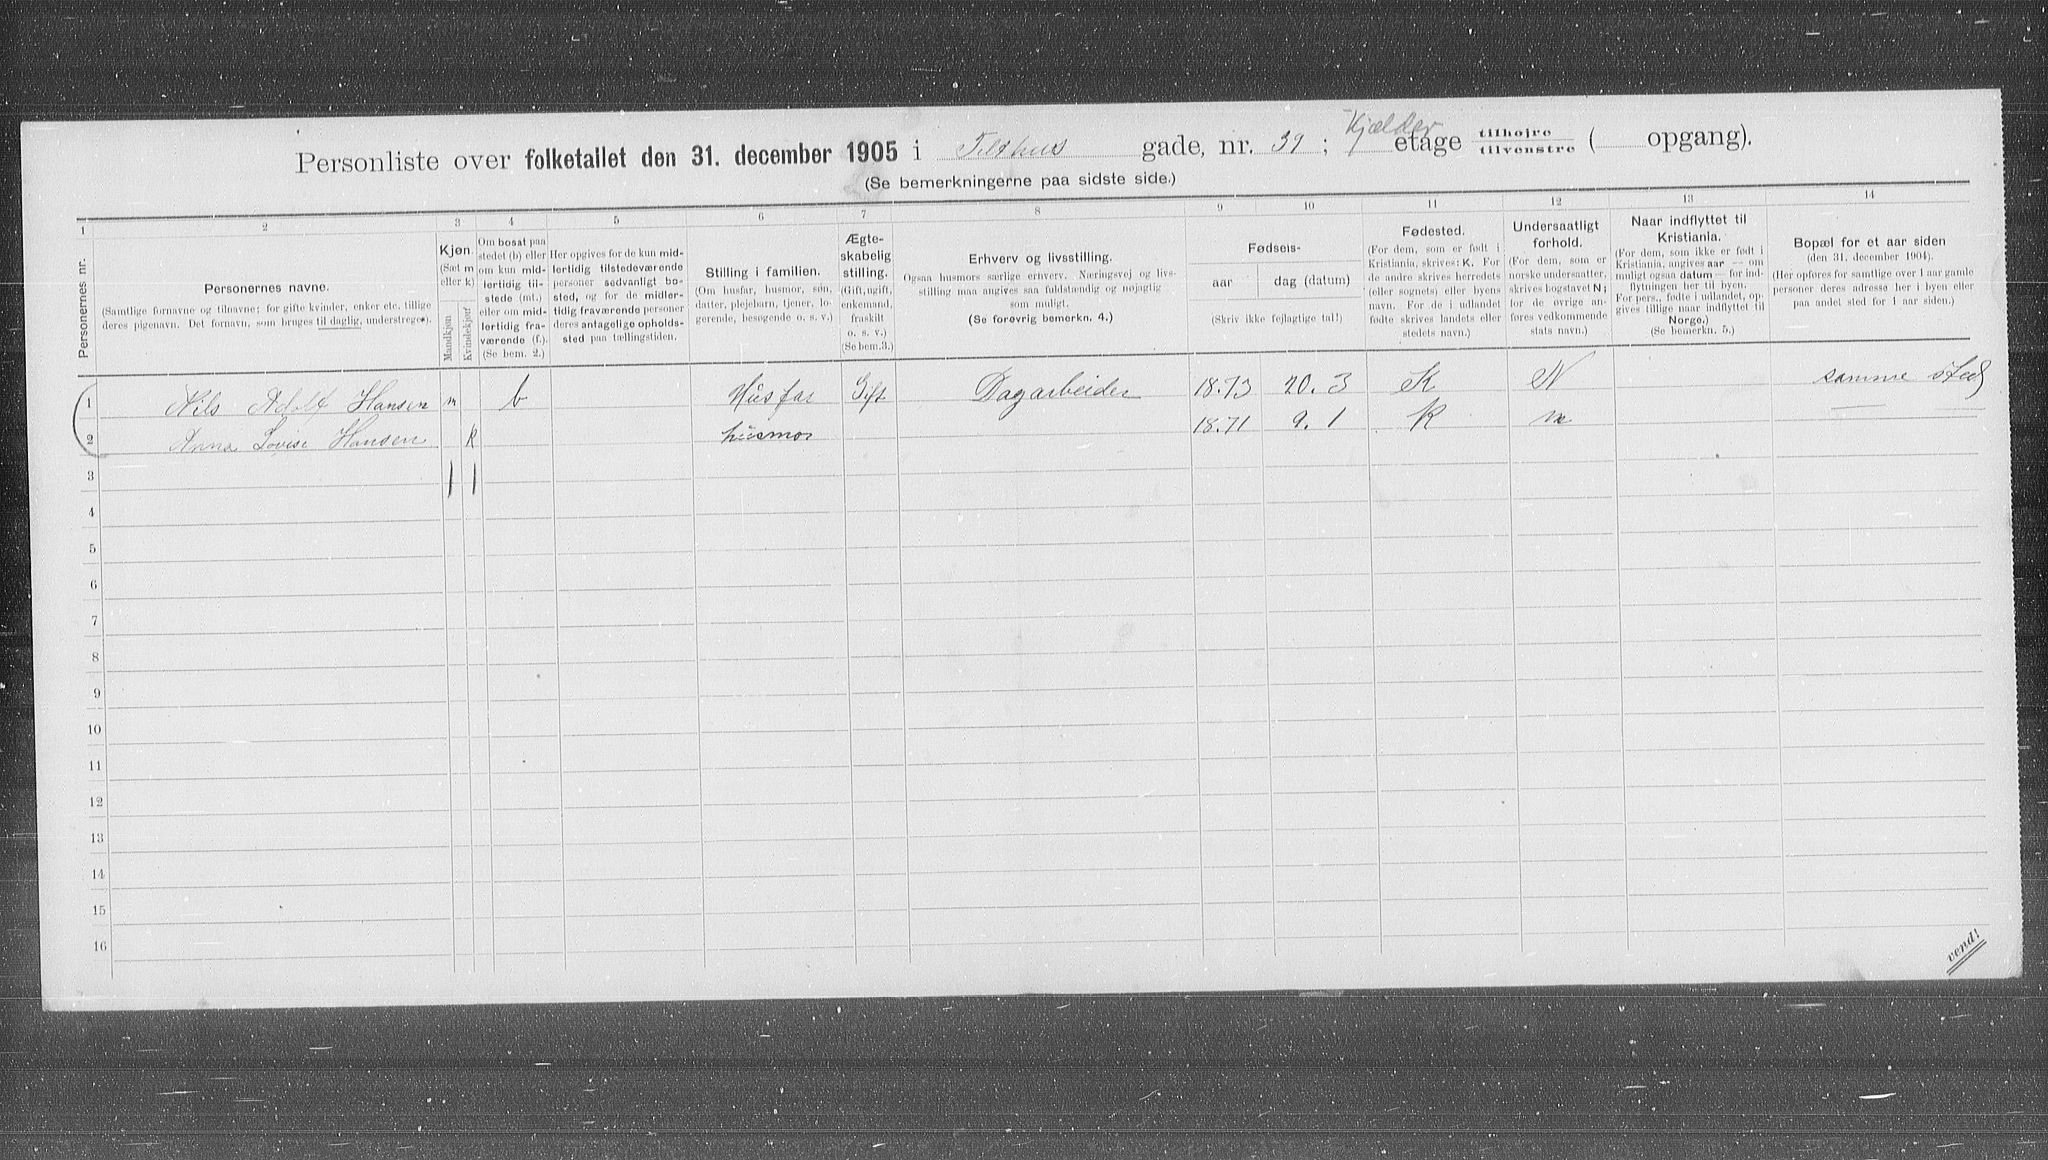 Personliste over folketallet den 31. december 1905 i Tefthus gade, nr. 39; Kjælder etage tilhøjre tilvenstre ( opgang).
(Se bemerkningerne paa sidste side.)
1 2 3 4 5 6 7 8 9 10 11 12 13 14
Personernes nr.
Personernes navne.
(Samtlige fornavne og tilnavne; for gifte kvinder, enker etc. tillige
deres pigenavn. Det fornavn, som bruges til daglig, understreges).
Kjøn.
(Sæt m
eller k)
Mandkjøn
Kvindekjøn
Om bosat paa
stedet (b) eller
om kun mid-
lertidig til-
stede (mt.)
eller om mid-
lertidig fra-
værende (f.).
(Se bem. 2.)
Her opgives for de kun mid-
lertidig tilstedeværende
personer sedvanligt bo-
sted, og for de midler-
tidig fraværende personer
deres antagelige opholds-
sted paa tællingstiden.
Stilling i familien.
(Om husfar, husmor, søn,
datter, plejebarn, tjener, lo-
gerende, besøgende o. s. v.)
Ægte-
skabelig
stilling.
(Gift, ugift,
enkemand,
fraskilt
o. s. v.)
(Se bem.3.)
Erhverv og livsstilling.
Ogsaa husmors særlige erhverv. Næringsvej og livs-
stilling maa angives saa fuldstændig og nøjagtig
som muligt.
(Se forøvrig bemerkn. 4.)
Fødsels-
aar dag (datum)
(Skriv ikke fejlagtige tal!)
Fødested.
(For dem, som er født i
Kristiania, skrives: K. For
de andre skrives herredets
(eller sognets) eller byens
navn. For de i udlandet
fødte skrives landets eller
stedets navn.)
Undersaatligt
forhold.
(For dem, som er
norske undersaatter,
skrives bogstavet N;
for de øvrige an-
føres vedkommende
stats navn.)
Naar indflyttet til
Kristiania.
(For dem, som ikke er født i
Kristiania, angives aar — om
muligt ogsaa datum — for ind-
flytningen her til byen.
For pers., fødte i udlandet, op-
gives tillige naar indflyttet til
Norge.)
(Se bemerkn. 5.)
Bopæl for et aar siden
(den 31. december 1904).
(Her opføres for samtlige over 1 aar gamle
personer deres adresse her i byen eller
paa andet sted for 1 aar siden.)
1 Nils Adolf Hansen m b Husfar Gift Dagarbeider 1873 20. 3 K N samme sted
2 Anna Lovise Hansen k husmor 1871 9. 1 K n — —
3
4
5
6
7
8
9
10
11
12
13
14
15
16
vend!